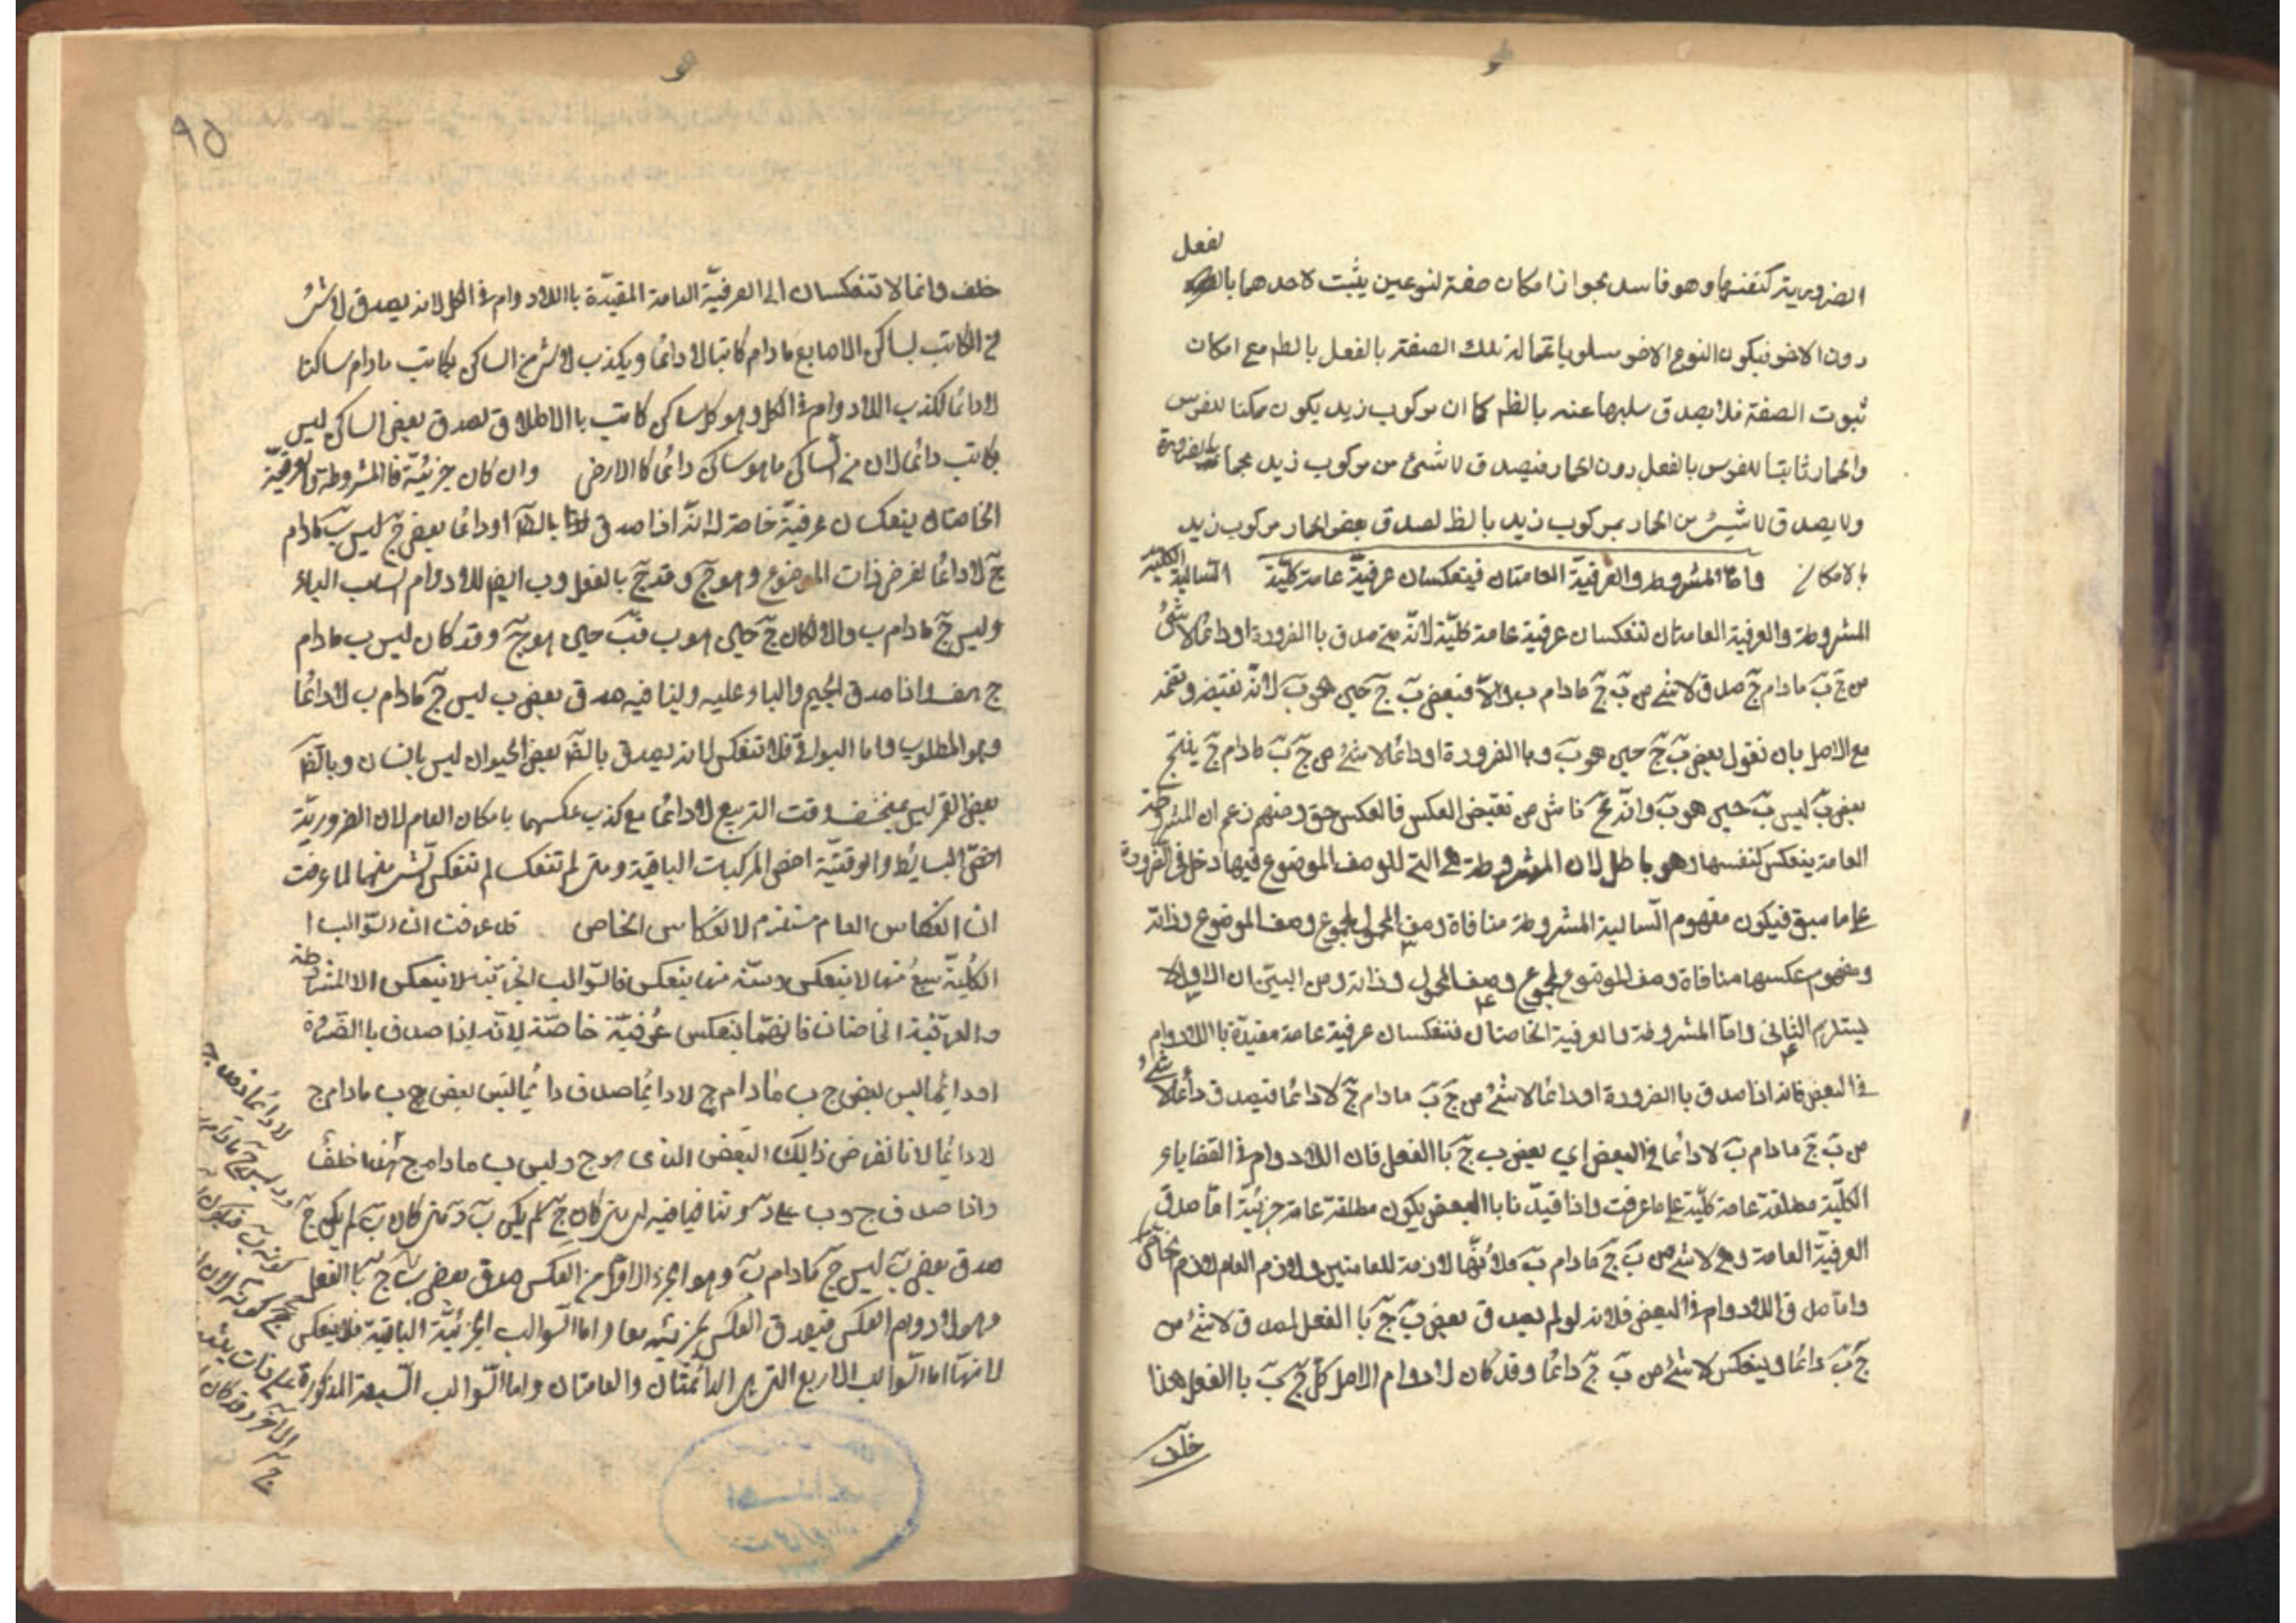 هو
لفعل
الضرورية كنفسها وهو فاسد بجواز امكان صفة لنوعين يثبت لاحدهما بالفعل
دون الاخر فيكون النوع الاخر مسلوبا عما له تلك الصفة بالفعل بالضر مع امكان
ثبوت الصفة فلا يصدق سلبها عنه بالضر كما ان مركوب زيد يكون ممكنا للفرس
والحمار ثابتا للفرس بالفعل دون الحمار فيصدق لا شئ من مركوب زيد بحمار بالضرورة
ولا يصدق لا شئ من الحمار بمركوب زيد بالضر لصدق بعض الحمار مركوب زيد
بالامكان واما المشروطة والعرفية العامتان فينعكسان عرفية عامة كلية السالبة الكلية
المشروطة والعرفية العامتان تنعكسان عرفية عامة كلية لانه متى صدق باالضرورة او دائما لا شئ
من جٓ بٓ مادام جٓ صدق لا شئ من بٓ جٓ مادام ب والا فبعض بٓ جٓ حين هو بٓ لانه نقيضه ونضمه
مع الاصل بان نقول بعض بٓ جٓ حين هو بٓ وباالضرورة او دائما لا شئ من جٓ بٓ مادام جٓ ينتج
بعض بٓ ليس بٓ حين هو بٓ وانه مح ناش من نقيض العكس فالعكس حق ومنهم زعم ان المشروطة
العامة ينعكس كنفسها وهو باطل لان المشروطة هي التي للوصف الموضوع فيها دخل في الضرورة
على ما سبق فيكون مفهوم السالبة المشروطة منافاة وصف المحمول لمجموع وصف الموضوع وذاته
ومفهوم عكسها منافاة وصف الموضوع لمجموع وصف المحمول وذاته ومن البين ان الاول لا
يستلزم الثانى واما المشروطة والعرفية الخاصتان فتنعكسان عرفية عامة مقيدة باللادوام
في البعض فانه اذا صدق باالضرورة او دائما لا شئ من جٓ بٓ مادام جٓ لا دائما فيصدق دائما لا شئ
من بٓ جٓ مادام بٓ لا دائما في البعض اي بعض ب جٓ باالفعل فان اللادوام في القضايا
الكلية مطلقة عامة كلية على ما عرفت واذا قيدنا باالبعض يكون مطلقة عامة جزئية اما صدق
العرفية العامة وهي لا شئ من بٓ جٓ مادام بٓ فلانها لازمة للعامتين ولازم العام لازم الخاص
واما صدق اللادوام في البعض فلانه لو لم يصدق بعض بٓ جٓ باالفعل لصدق لا شئ من
جٓ بٓ دائما وينعكس لا شئ من بٓ جٓ دائما وقد كان لادوام الاصل كل جٓ بٓ باالفعل هذا
خلف
هو
٩٥
خلف وانما لا تنعكسان الى العرفية العامة المقيدة باللادوام في الكل لانه يصدق لا شئ
من الكاتب بساكن الاصابع مادام كاتبا لا دائما ويكذب لا شئ من الساكن بكاتب مادام ساكنا
لا دائما لكذب اللادوام في الكل وهو كل ساكن كاتب باالاطلاق لصدق بعض الساكن ليس
بكاتب دائما لان من الساكن ما هو ساكن دائما كاالارض وان كان جزئية فالمشروطة والعرفية
الخاصتان ينعكسان عرفية خاصة لانه اذا صدق بالضر او دائما بعض جٓ ليس بٓ مادام
جٓ لا دائما نفرض ذات الموضوع وهو جٓ بالفعل وب ايضا للادوام لسلب الباء
وليس جٓ مادام ب والا لكان جٓ حين هو ب فبٓ حين هو جٓ وقد كان ليس ب مادام
ج هف واذا صدق الجيم والباء عليه وتنافيه صدق بعض ب ليس جٓ مادام ب لا دائما
وهو المطلوب واما البواقي فلا تنعكس لانه يصدق بالضر بعض الحيوان ليس بانسان وبالضر
بعض القمر ليس بمنخسف وقت التربيع لا دائما مع كذب عكسهما بامكان العام لان الضرورية
اخص البسائط والوقتية اخص المركبات الباقية ومتى لم تنعكس لم تنعكس شئ منها لما عرفت
ان انعكاس العام مستلزم لانعكاس الخاص قد عرفت ان السوالب ا
الكلية سبع منها لا ينعكس وستة منها ينعكس فالسوالب الجزئية لا ينعكس الا المشروطة
والعرفية الخاصتان فانهما ينعكس عرفية خاصة لانه اذا صدق باالضرورة
او دائما ليس بعض ج ب مادام ج لا دائما صدق دائما ليس بعض ج ب مادام ج
لا دائما لانا نفرض ذالك البعض الذى هو ج وليس ب مادام ج خلف
واذا صدق ج وب على دٓ وتنافيا فيه لى متى كان جٓ لم يكن بٓ ومتى كان بٓ لم يكن جٓ
صدق بعض بٓ ليس جٓ مادام بٓ وهو الجزء الاول من العكس وصدق بعض ب جٓ باالفعل
وهو لادوام العكس فيصدق العكس بجزئيه معا واما السوالب الجزئية الباقية فلا ينعكس
لانها اما السوالب الاربع التي هي الدائمتان والعامتان واما السوالب السبعة المذكورة